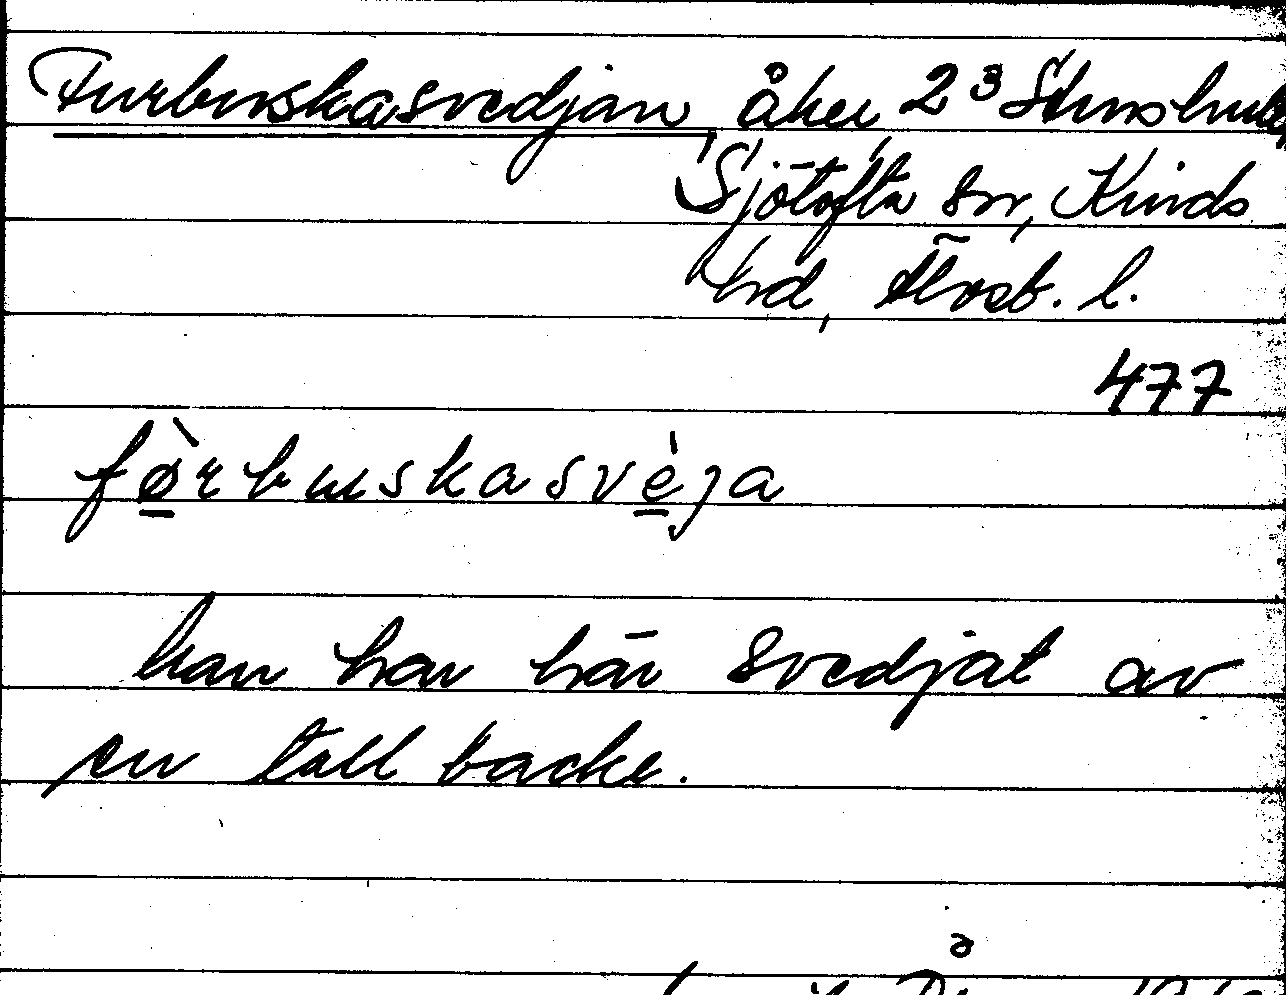 Furbuskasvedjan, åker, 2³
Sjötofta sn, Kinds
hd, Älvsb. l.
477
fø̀rbuskasvèja
han har här svedjat av
en tall backe.